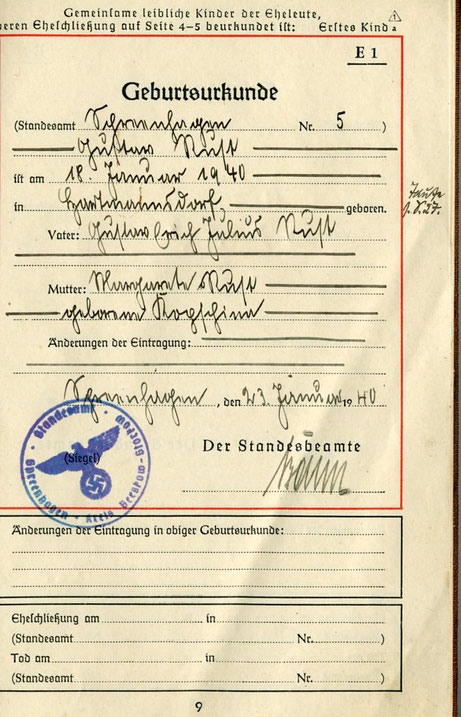 Gemeinsame leibliche Kinder der Eheleute,
deren Eheschließung auf Seite 4-5 beurkundet ist: Erstes Kind a
E 1
Geburtsurkunde
(Standesamt Spreenhagen Nr. 5 )
Gustav Rust
ist am 18. Januar 1940
in Hartmannsdorf geboren.
Taufe
s. S. 27.
Vater: Gustav Erich Julius Rust
Mutter: Margarete Rust
geborene Kopschina
Änderungen der Eintragung:
Spreenhagen, den 23. Januar 1940
Der Standesbeamte
(Siegel)
Standesamt Spreenhagen Kreis Beeskow-Storkow
Änderungen der Eintragung in obiger Geburtsurkunde:
Eheschließung am in
(Standesamt Nr. )
Tod am in
(Standesamt Nr. )
9